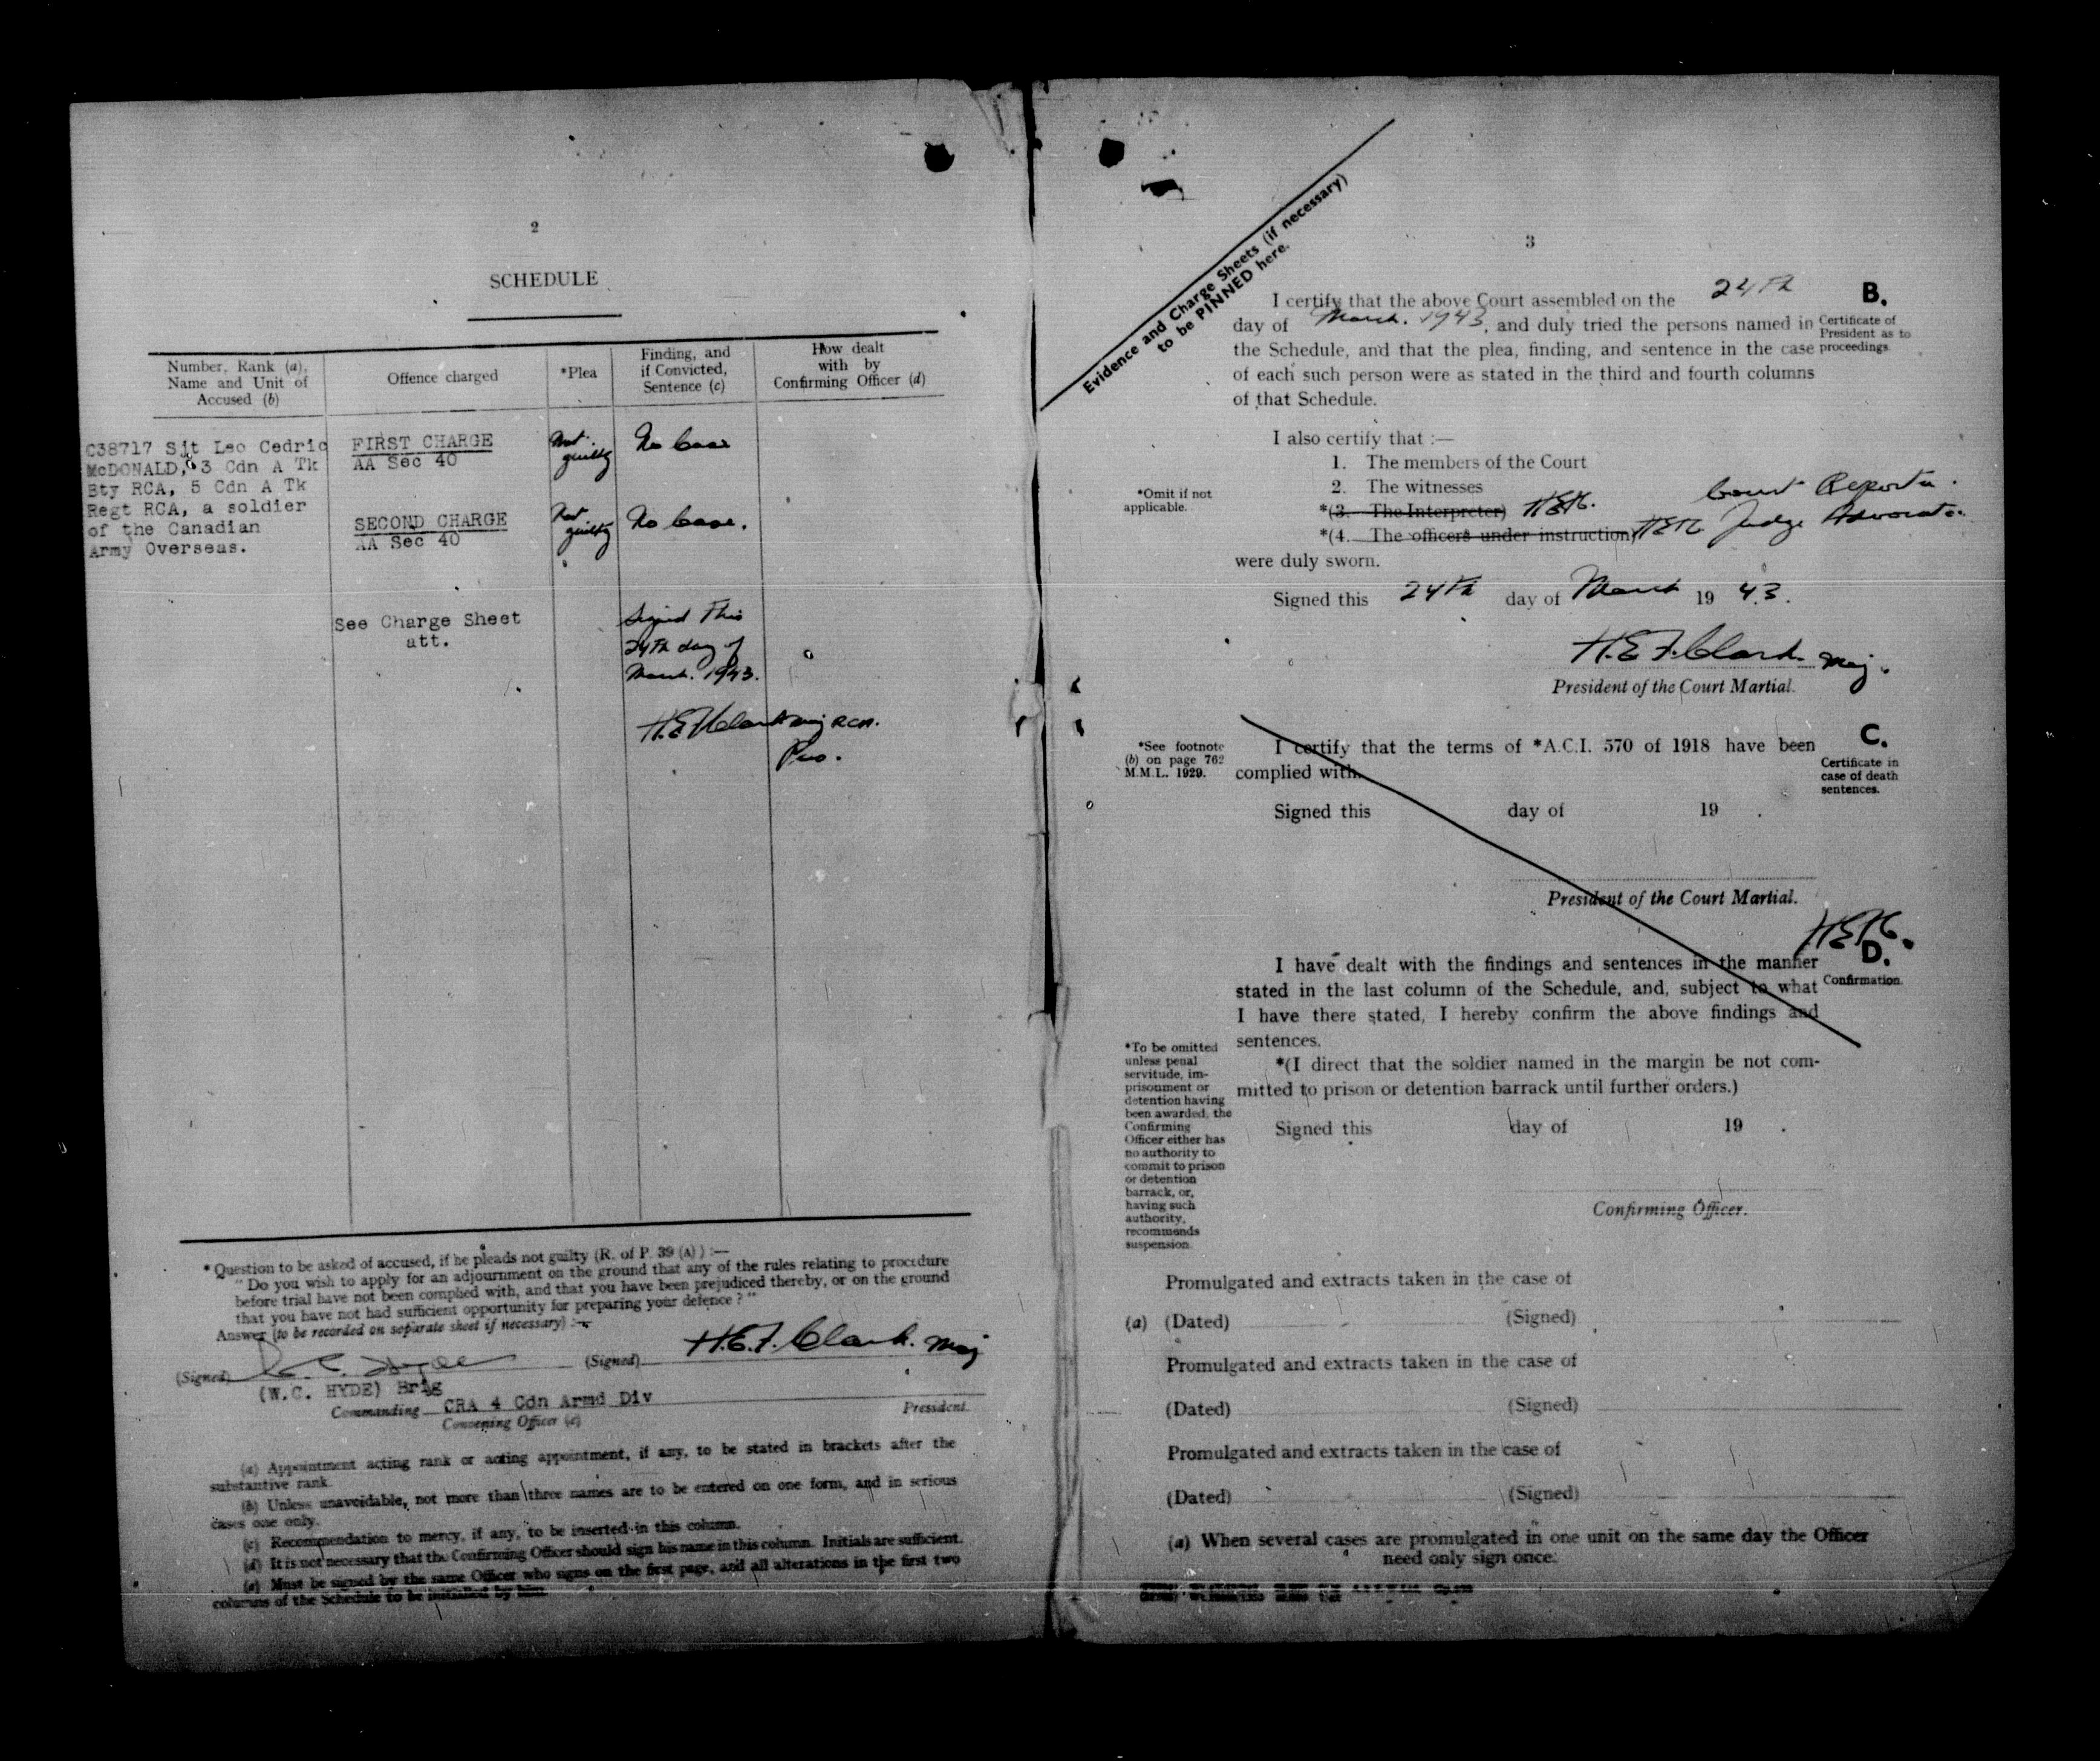 2
SCHEDULE
Number, Rank (a), Name and Unit of Accused (b)
Offence charged
*Plea
Finding, and if Convicted, Sentence (c)
How dealt with by Confirming Officer (d)
C38717 Sjt Leo Cedric
McDONALD, 3 Cdn A Tk
Bty RCA, 5 Cdn A Tk
Regt RCA, a soldier
of the Canadian
Army Overseas.
FIRST CHARGE
AA Sec 40
Not guilty
No Case
SECOND CHARGE
AA Sec 40
Not guilty
No Case.
See Charge Sheet
att.
Signed This
24th day of
March. 1943.
H.E.F. Clark Maj RCA.
Pres.
* Question to be asked of accused, if he pleads not guilty (R. of P. 39 (A)) :—
" Do you wish to apply for an adjournment on the ground that any of the rules relating to procedure
before trial have not been complied with, and that you have been prejudiced thereby, or on the ground
that you have not had sufficient opportunity for preparing your defence ? "
Answer (to be recorded on separate sheet if necessary) :—
(Signed) (Signed) H.E.F. Clark. Maj
(W.C. HYDE) Brig
Commanding CRA 4 Cdn Armd Div
President.
Convening Officer (e)
(a) Appointment acting rank or acting appointment, if any, to be stated in brackets after the
substantive rank.
(b) Unless unavoidable, not more than three names are to be entered on one form, and in serious
cases one only.
(c) Recommendation to mercy, if any, to be inserted in this column.
(d) It is not necessary that the Confirming Officer should sign his name in this column. Initials are sufficient.
(e) Must be signed by the same Officer who signs on the first page, and all alterations in the first two
columns of the Schedule to be initialled by him.
Evidence and Charge Sheets (if necessary)
to be PINNED here.
3
I certify that the above Court assembled on the 24th
day of March. 1943, and duly tried the persons named in
the Schedule, and that the plea, finding, and sentence in the case
of each such person were as stated in the third and fourth columns
of that Schedule.
B.
Certificate of
President as to
proceedings.
I also certify that :—
1. The members of the Court
2. The witnesses
*(3. The Interpreter) H.E.F.C. Court Reporter.
*(4. The officers under instruction) H.E.F.C. Judge Advocate.
were duly sworn.
*Omit if not
applicable.
Signed this 24th day of March 19 43.
H.E.F. Clark. Maj.
President of the Court Martial.
*See footnote
(b) on page 762
M.M.L. 1929.
I certify that the terms of *A.C.I. 570 of 1918 have been
complied with.
C.
Certificate in
case of death
sentences.
Signed this day of 19 .
President of the Court Martial.
H.E.F.C.
D.
Confirmation.
I have dealt with the findings and sentences in the manner
stated in the last column of the Schedule, and, subject to what
I have there stated, I hereby confirm the above findings and
sentences.
*(I direct that the soldier named in the margin be not com-
mitted to prison or detention barrack until further orders.)
*To be omitted
unless penal
servitude, im-
prisonment or
detention having
been awarded, the
Confirming
Officer either has
no authority to
commit to prison
or detention
barrack, or,
having such
authority,
recommends
suspension.
Signed this day of 19 .
Confirming Officer.
Promulgated and extracts taken in the case of
(a) (Dated) (Signed)
Promulgated and extracts taken in the case of
(Dated) (Signed)
Promulgated and extracts taken in the case of
(Dated) (Signed)
(a) When several cases are promulgated in one unit on the same day the Officer
need only sign once.